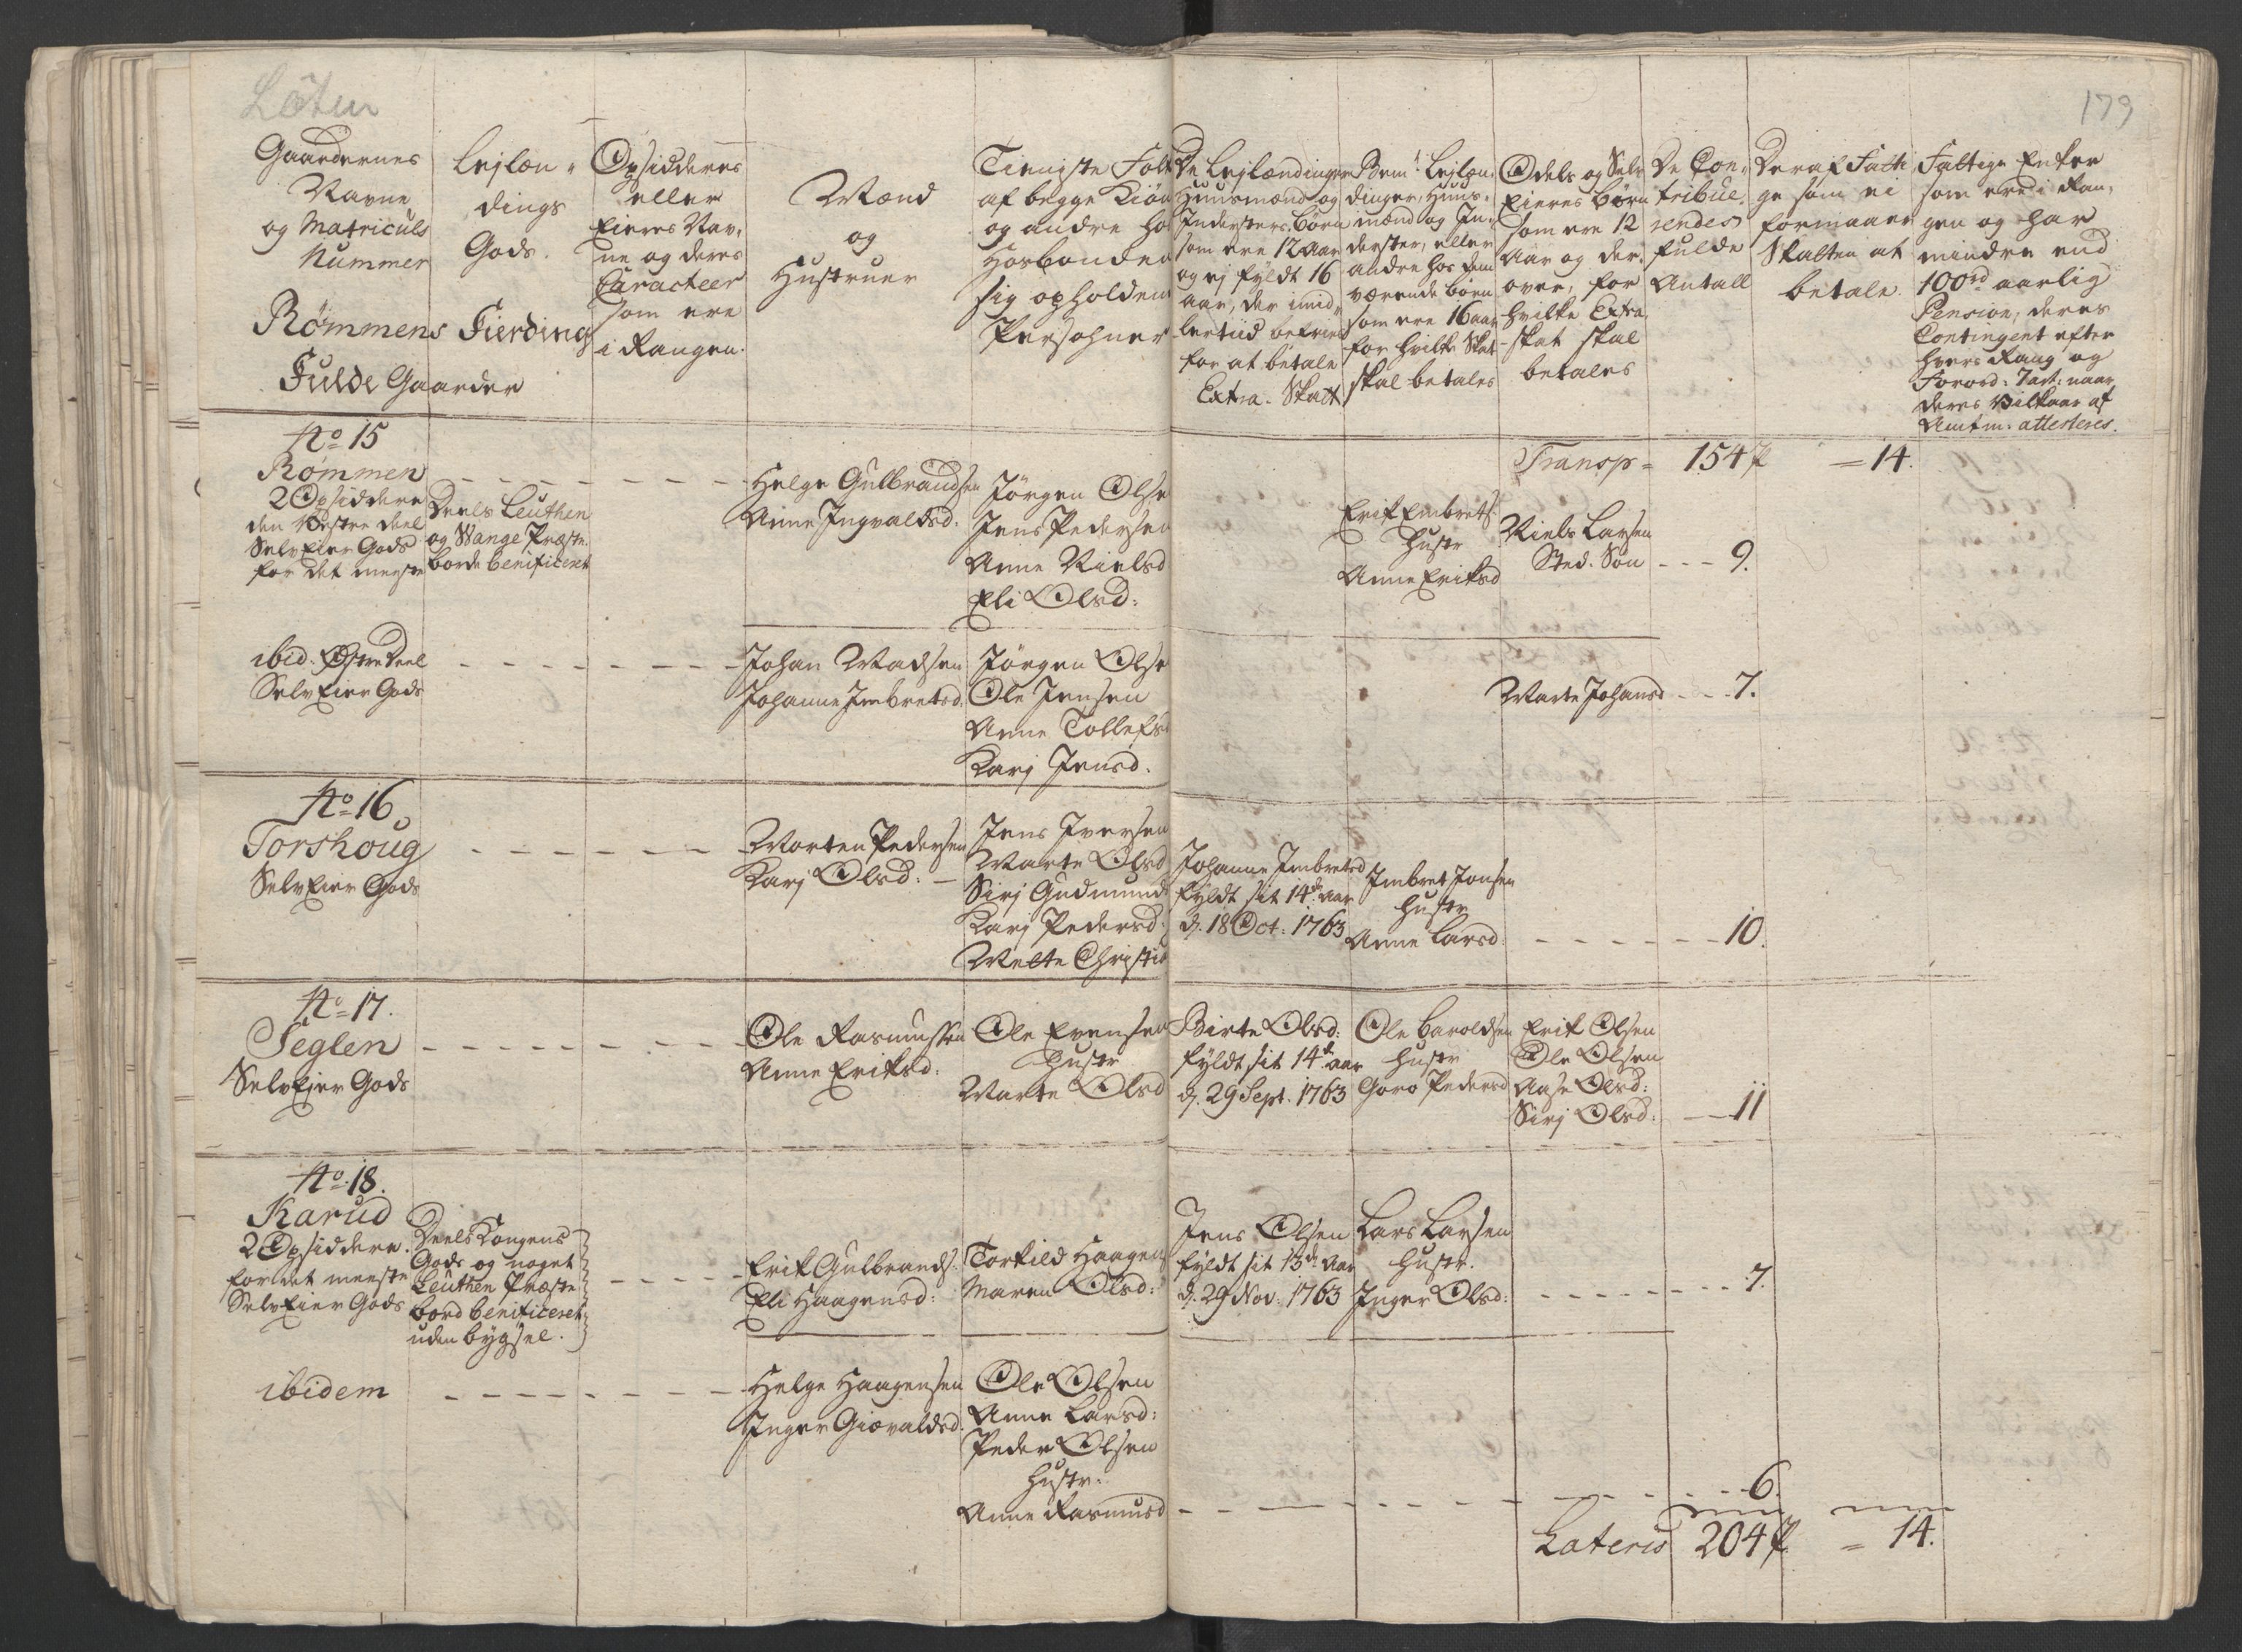 Løten
179
Gaardernes
Navne
og Matriculs
Nummer
Lejlæn-
dings
Gods.
Opsiddernes
eller
Eieres Nav-
ne og deres
Caracteer
som ere
i Rangen.
Mænd
og
Hustruer
Tieniste Folk
af begge Kiøn
og andre hos
Hosbonden
sig opholdene
Persohner
De Lejlændinger
Huusmænd og
Indersters Børn
som ere 12 Aar
og ej fyldt 16
aar, der imid-
lertiid befries
for at betale
Extra-Skatt
Bem: Lejlæn-
dinger, Huus-
mænd og In-
derster, eller
andre hos dem
værende børn
som ere 16 aar
for hvilke Skat
skal betales
Odels og Selv
Eieres Børn
som ere 12
Aar og der-
over, for
hvilke Extra
-skat skal
betales
De Con-
tribue-
rendes
fulde
Antall
Deraf Fatti-
ge som ei
formaaer
Skatten at
betale
Fattige Enker
som ere i Ran-
gen og har
mindre end
100 rd aarlig
Pension, deres
Contingent efter
hvers Rang og
Forord: 7 art: naar
deres Vilkaar af
Amtm: attesteres.
Rømmens Fierding
Fulde Gaarder
No 15
Rømmen
2 Opsiddere
den Vestre deel
SelvEier Gods
for det meeste
Deels Leuthen
og Wange Præste
borde benificeret
Helge Gulbrandsen
Anne Ingvaldsd:
Jørgen Olse
Jens Pedersen
Anne Nielsd
Eli Olsd:
Erik Embrets:
Hustr
Anne Eriksd
Niels Larsen
Sted-Søn
Transp = 154 = 14.
9.
ibid. Østre Deel
SelvEier Gods
Johan Madsen
Johanne Imbretsd.
Jørgen Olse
Ole Jensen
Anne Tollefsd
Karj Jensd:
Marte Johansd
7.
No 16
Torshoug
SelvEier Gods
Morten Pedersen
Karj Olsd:
Jens Iversen
Marte Olsd
Sirj Gudmunds
Karj Pedersd:
Mette Christi
Johanne Imbretsd
fyldt sit 14de aar
d. 18 Oct: 1763
Imbret Jonsen
Hustr
Anne Larsd:
10.
No 17.
Seglen
SelvEjer Gods
Ole Rasmussen
Anne Eriksd:
Ole Evensen
Hustr
Marte Olsd
Birte Olsd:
fyldt sit 14de aar
d. 29 Sept. 1763
Ole Haroldsen
Hustr
Goro Pedersd
Erik Olsen
Ole Olsen
Aase Olsd:
Sirj Olsd:
11
No 18.
Karud
2 Opsiddere.
for det meeste
SelvEier Gods
Deels Kongens
Gods og noget
Leuthen Præste
bord benificeret
uden bygsel.
Erik Gulbrands:
Eli Haagensd:
Torkild Haagens
Maren Olsd:
Jens Olsen
fyldt sit 13de Aar
d. 29 Nov: 1763
Lars Larsen
Hustr.
Inger Olsd:
7.
ibidem
Helge Haagensen
Inger Giævaldsd.
Ole Olsen
Anne Larsd:
Peder Olsen
Hustr:
Anne Rasmusd
6.
Lateris 204 = 14.